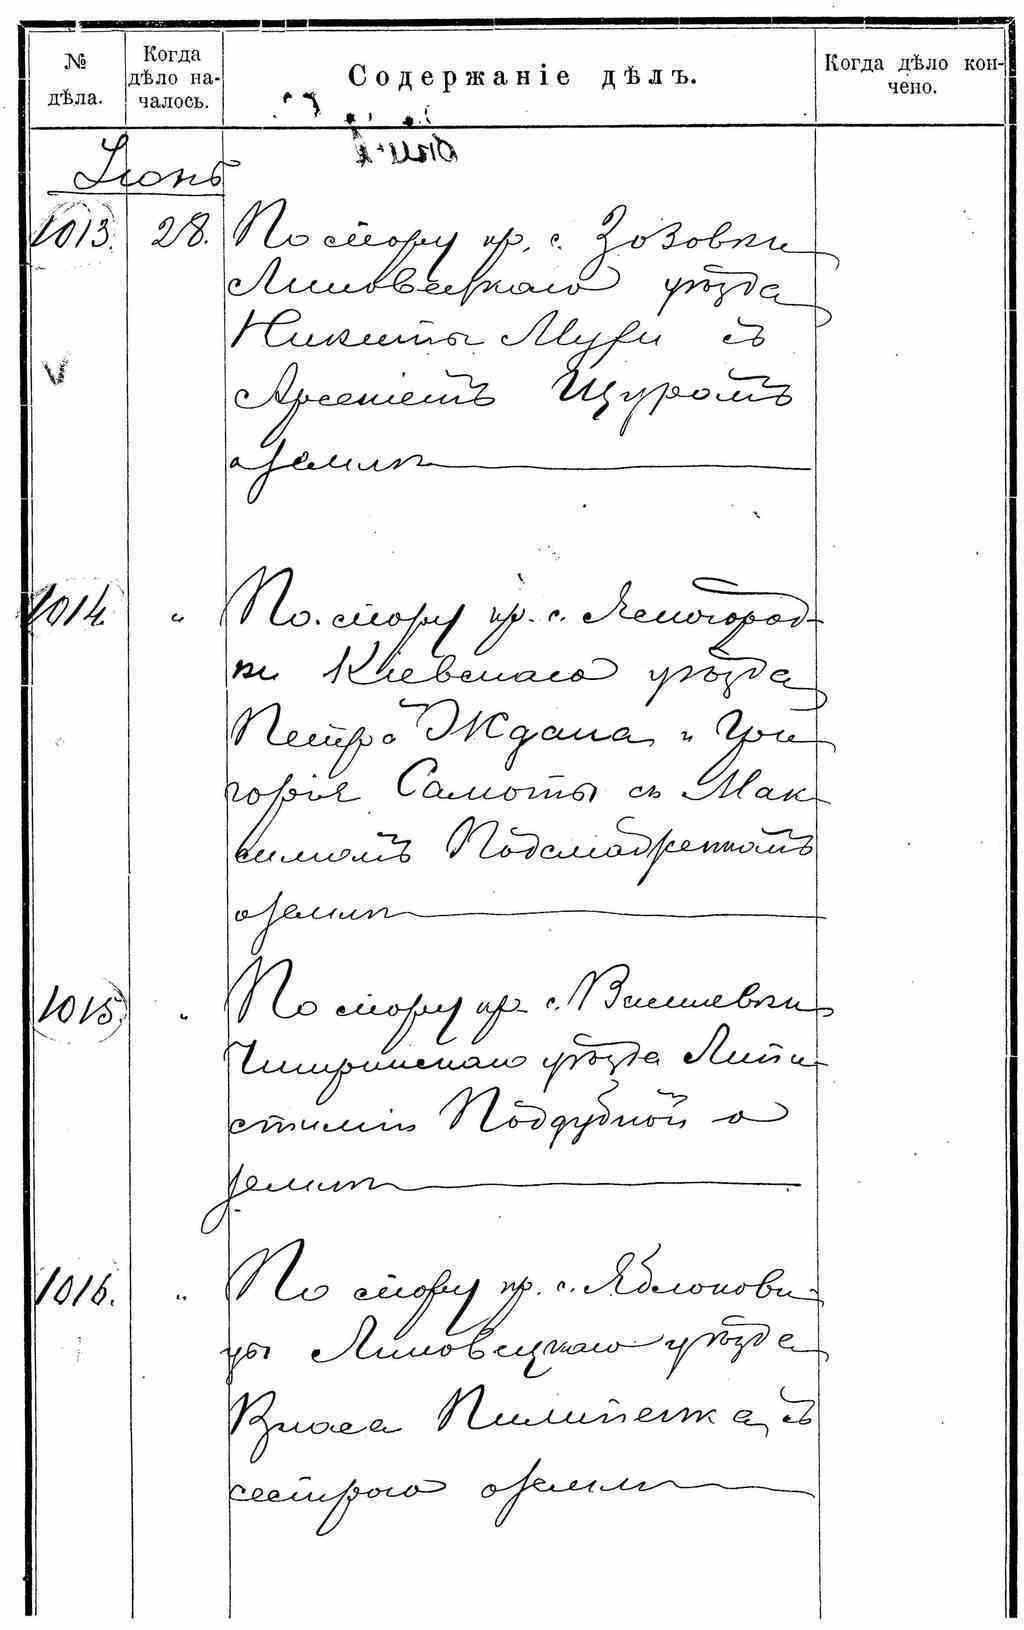 № дѣла.
Когда дѣло началось.
Содержаніе дѣлъ.
Когда дѣло кончено.
Іюнь
1013. 28. По спору кр. с. Зозовки
Липовецкаго уѣзда
Никиты Мури съ
Арсеніемъ Щуромъ
о землѣ
1014. " По спору кр. с. Ясногород-
ки Кіевскаго уѣзда
Петра Ждана и Гри-
горія Самоты съ Мак-
симомъ Подсмадренкомъ
о землѣ
1015. " По спору кр. с.
Чигринскаго уѣзда
Поддубной о
землѣ
1016. " По спору кр. с. Яблонови-
цы Липовецкаго уѣзда
Власа Пилипенка съ
сестрою о землѣ